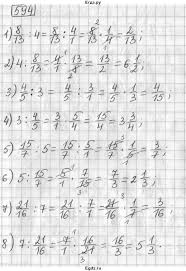 Kraz.ру
594
1) 8/13 : 4 = 8/13 : 4/1 = 8/13 · 1/4 = 2/13;
2) 4 : 8/13 = 4/1 · 13/8 = 13/2 = 6 1/2;
3) 4/5 : 3 = 4/5 : 3/1 = 4/5 · 1/3 = 4/15;
4) 3 : 4/5 = 3/1 · 5/4 = 15/4 = 3 3/4;
5) 15/7 : 5 = 15/7 : 5/1 = 15/7 · 1/5 = 3/7;
6) 5 : 15/7 = 5/1 · 7/15 = 7/3 = 2 1/3;
7) 21/16 : 7 = 21/16 : 7/1 = 21/16 · 1/7 = 3/16;
8) 7 : 21/16 = 7/1 · 16/21 = 16/3 = 5 1/3.